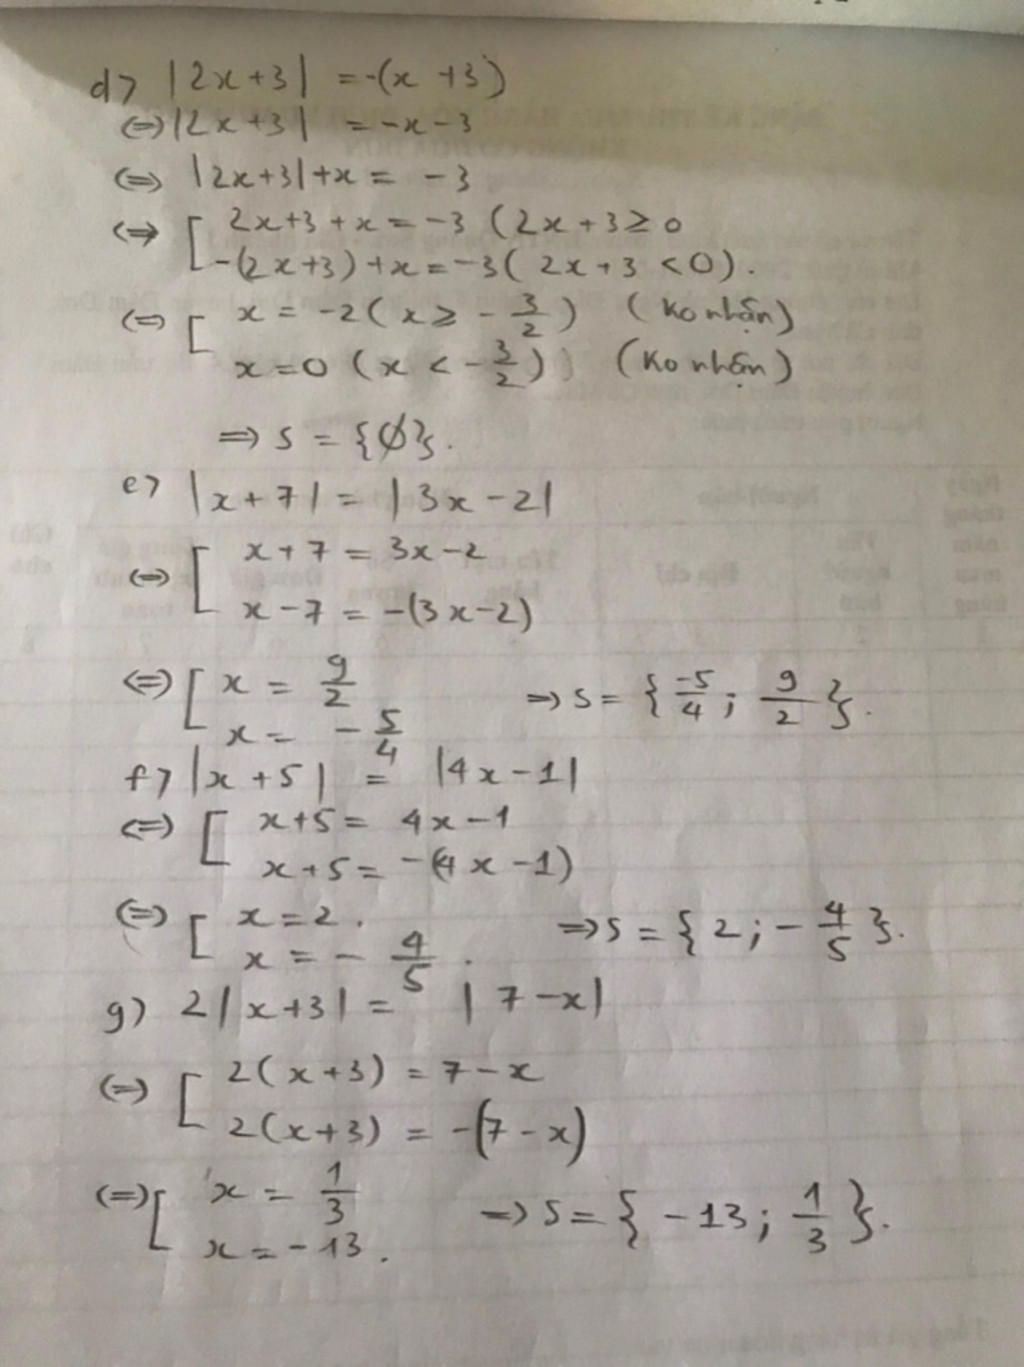 d> |2x+3| = -(x+3)
(=) |2x+3| = -x-3
(=) |2x+3|+x = -3
(=) [ 2x+3+x = -3 (2x+3 ≥ 0
-(2x+3)+x = -3 (2x+3 < 0).
(=) [ x = -2 (x ≥ -3/2) (Ko nhận)
x = 0 (x < -3/2) (Ko nhận)
=> S = {∅}.
e> |x+7| = |3x-2|
(=) [ x+7 = 3x-2
x-7 = -(3x-2)
(=) [ x = 9/2 => S = {-5/4; 9/2}.
x = -5/4
f> |x+5| = |4x-1|
(=) [ x+5 = 4x-1
x+5 = -(4x-1)
(=) [ x = 2. => S = {2; -4/5}.
x = -4/5.
g) 2|x+3| = |7-x|
(=) [ 2(x+3) = 7-x
2(x+3) = -(7-x)
(=) [ x = 1/3 => S = {-13; 1/3}.
x = -13.